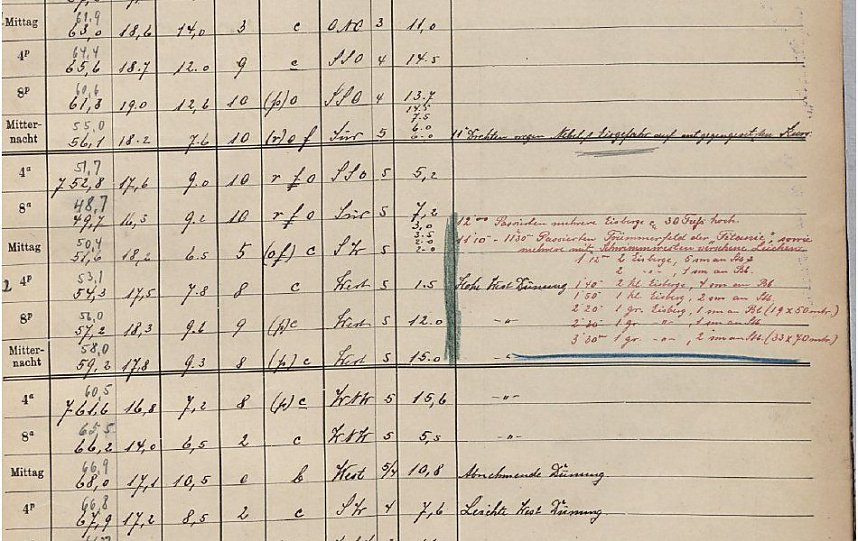 61,9
Mittag 63,0 18,6 14,0 3 c ONO 3 11,0
64,4
4p 65,6 18.7 12.0 9 c SSO 4 14.5
60,6
8p 61,8 19.0 12,6 10 (p)o SSO 4 13.7
14.5
7.5
55,0 6.0
Mitter-nacht 56,1 18.2 7.6 10 (r)of Süd 5 6.0 Drehten wegen Nebel & Eisgefahr auf entgegengesetzten Kurs
51,7
4a 752,8 17,6 9.0 10 rfo SSO 5 5,2
48,7
8a 49,7 16,3 9.2 10 rfo Süd 5 7,2
12°° Passirten mehrere Eisberge ca 30 Fuß hoch.
3,0
3.5
50,4 2.0
11'10" - 11'30" Passierten Trümmerfeld der „Titanic“, sowie
Mittag 51,6 18,2 6.5 5 (of)c SW 5 2.0 mehrere mit Schwimmwesten versehene Leichen
1'12" 2 Eisberge, 5 sm an Stb
2 -"- , 1 sm an Bb.
53,1
4p 54,3 17,5 7.8 8 c West 5 1.5 Hohe West Dünung 1'40" 2 kl. Eisberge, 4 sm an Bb
1'50" 1 kl. Eisberg, 2 sm an Stb.
2'20" 1 gr. Eisberg, 1 sm an Bb (19 x 50 mtr.)
56,0
8p 57,2 18,3 9.6 9 (p)c West 5 12.0 -"- 2'30" 1 gr. -"- , 1 sm an Stb
3'30" 1 gr. -"- , 2 sm an Stb. (33 x 70 mtr.)
58,0
Mitter-nacht 59,2 17,8 9.3 8 (p)c West 5 15.0 -"-
60,5
4a 761,6 16,8 7,2 8 (p)c WNW 5 15,6 -"-
65,5
8a 66,2 14,0 6,5 2 c WNW 5 5,5 -"-
66,9
Mittag 68,0 17,1 10,5 0 b West 5/4 10,8 Abnehmende Dünung.
66,8
4p 67,9 17,2 8,5 2 c SW 4 7,6 Leichte West Dünung.